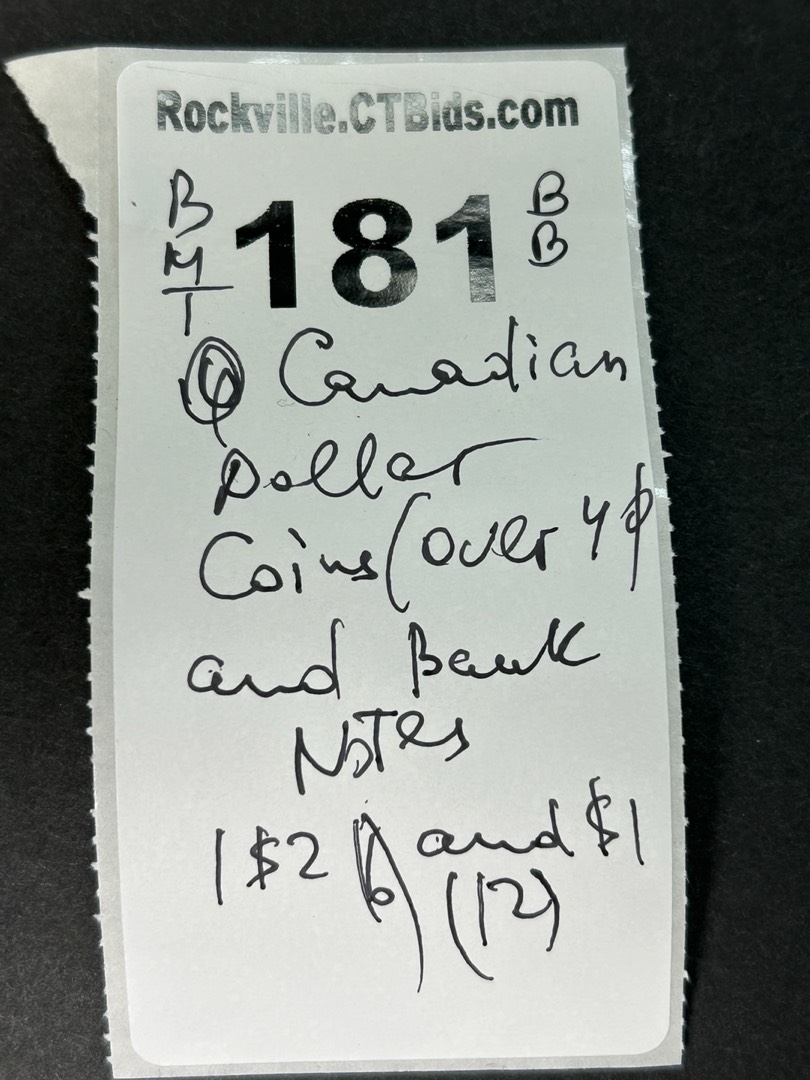 Rockville.CTBids.com
B M T 181 B B
Canadian
Dollar
Coins (over 40
and Bank
Notes
1 $2 and $1
(12)